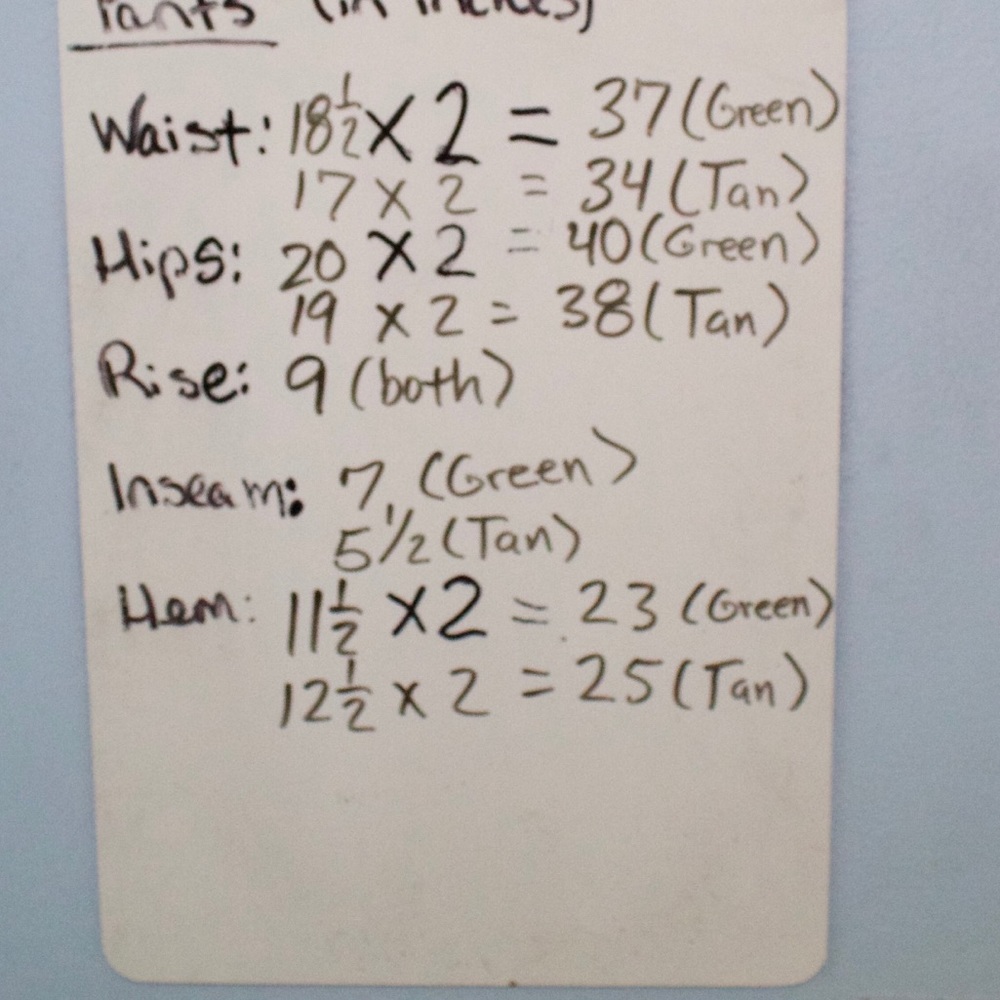 Pants (in inches)
Waist: 18 1/2 X 2 = 37 (Green)
17 x 2 = 34 (Tan)
Hips: 20 X 2 = 40 (Green)
19 x 2 = 38 (Tan)
Rise: 9 (both)
Inseam: 7 (Green)
5 1/2 (Tan)
Hem: 11 1/2 X 2 = 23 (Green)
12 1/2 x 2 = 25 (Tan)